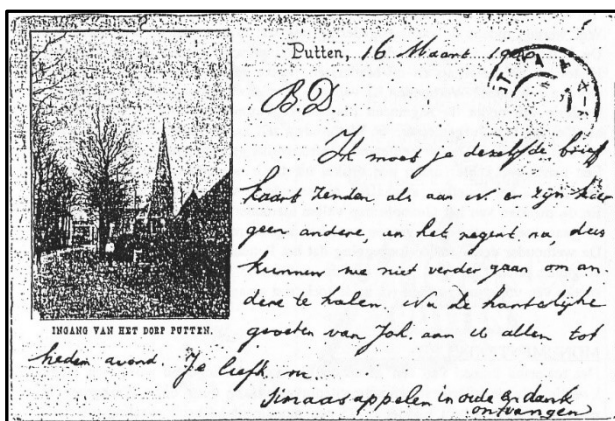 Putten, 16 Maart 19
B.D.
Ik moet je dezelfde brief
kaart zenden als aan W er zijn hier
geen andere, en het regent nu, dus
kunnen we niet verder gaan om an-
dere te halen. Nu de hartelijke
groeten van Joh. aan u allen tot
heden avond. Je liefh.
Sinaasappelen in orde en dank
ontvangen
INGANG VAN HET DORP PUTTEN.